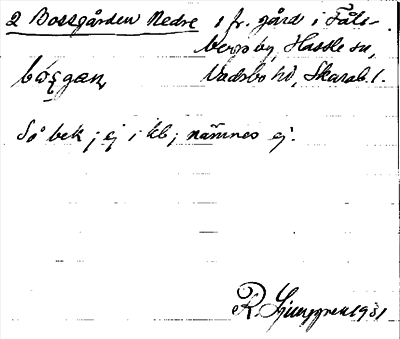 2 Bossgården Nedre 1 fr. gård i Fåls-
bergs by, Hassle sn,
Vadsbo hd, Skarab. l.
Så bek; ej i kb; nämnes ej.
R. Ljunggren 1931